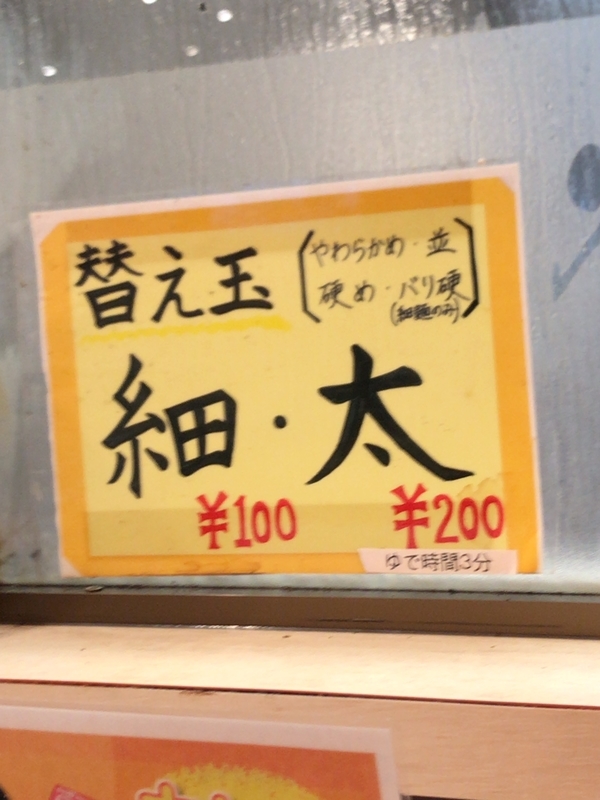 替え玉
やわらかめ・並
硬め・バリ硬
(細麺のみ)
細・太
¥100 ¥200
ゆで時間3分